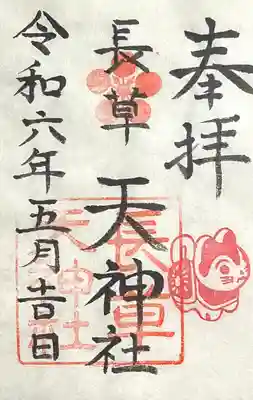 奉拝
長草天神社
令和六年五月吉日
長草
天神社